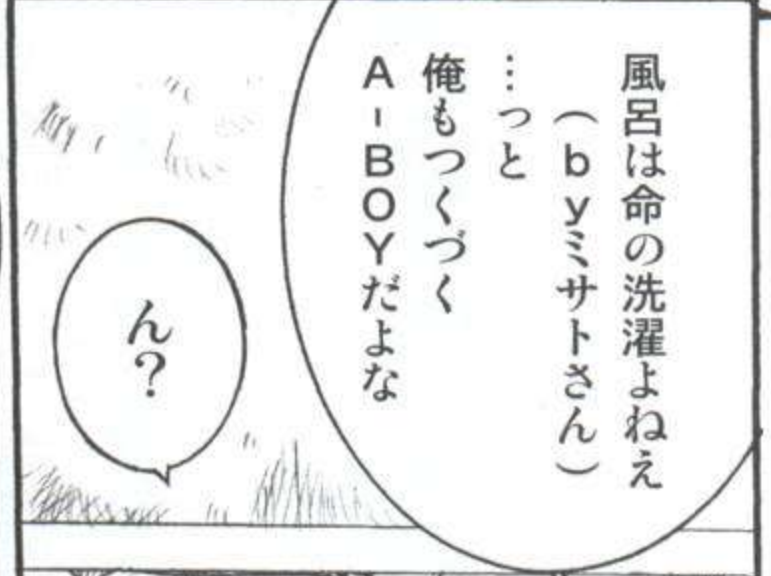 風呂は命の洗濯よねえ
（ｂｙミサトさん）
…っと
俺もつくづく
Ａ-ＢＯＹだよな
ん？